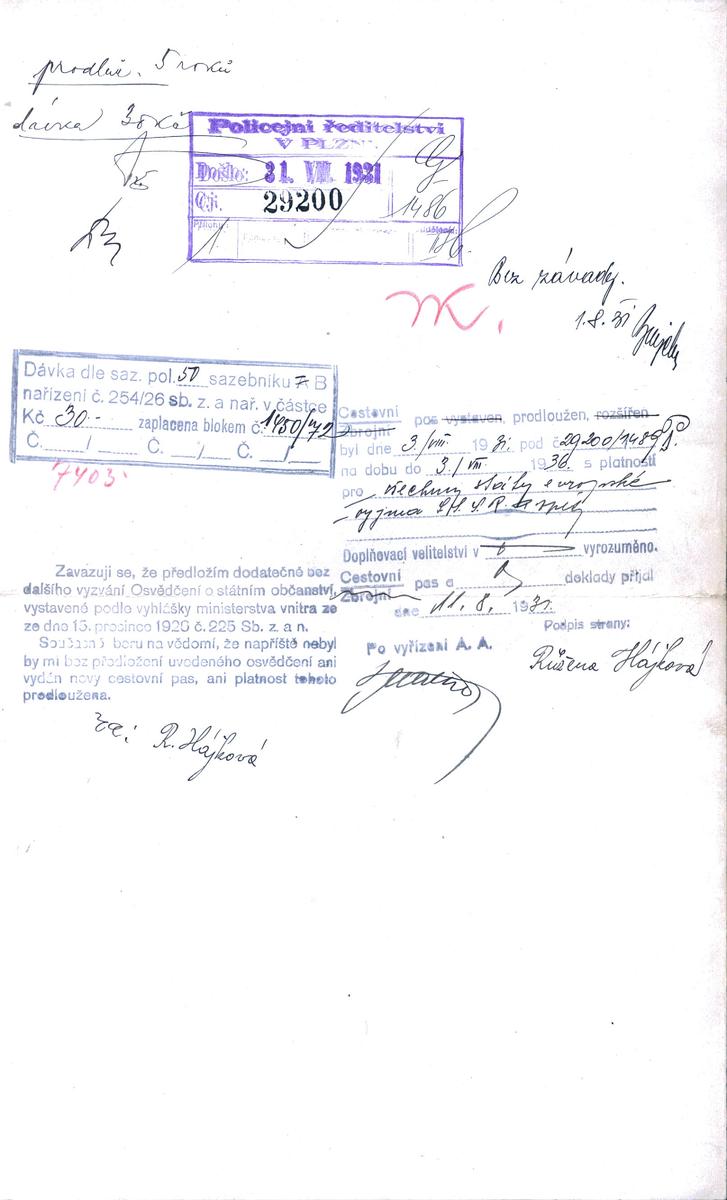 prodluž. 5 roků
dávka 30 Kč
Policejní ředitelství
V PLZNI
Došlo: 31. VII. 1931
Č.j. 29200
G
1486
Přílohy: 1
oddělení:
Bez závady.
1.8.31
Dávka dle saz. pol. 50 sazebníku A B
nařízení č. 254/26 sb. z. a nař. v částce
Kč 30.- zaplacena blokem č. 1450/72
Č. / Č. / Č. /
7403.
Cestovní pas vystaven, prodloužen, rozšířen
Zbrojní
byl dne 3/VIII. 1931. pod č. 29.200/1486
na dobu do 3./VIII. 1936. s platností
pro všechny státy evropské
vyjma
Doplňovací velitelství v vyrozuměno.
Cestovní pas a doklady přijal
Zbrojní
dne 11.8. 1931.
Podpis strany:
Růžena Hájková
Po vyřízení A. A.
Zavazuji se, že předložím dodatečně bez
dalšího vyzvání Osvědčení o státním občanství,
vystavené podle vyhlášky ministerstva vnitra ze
ze dne 15. prosince 1926 č. 225 Sb. z. a n.
Současně beru na vědomí, že napříště nebyl
by mi bez předložení uvedeného osvědčení ani
vydán nový cestovní pas, ani platnost tohoto
prodloužena.
R. Hájková